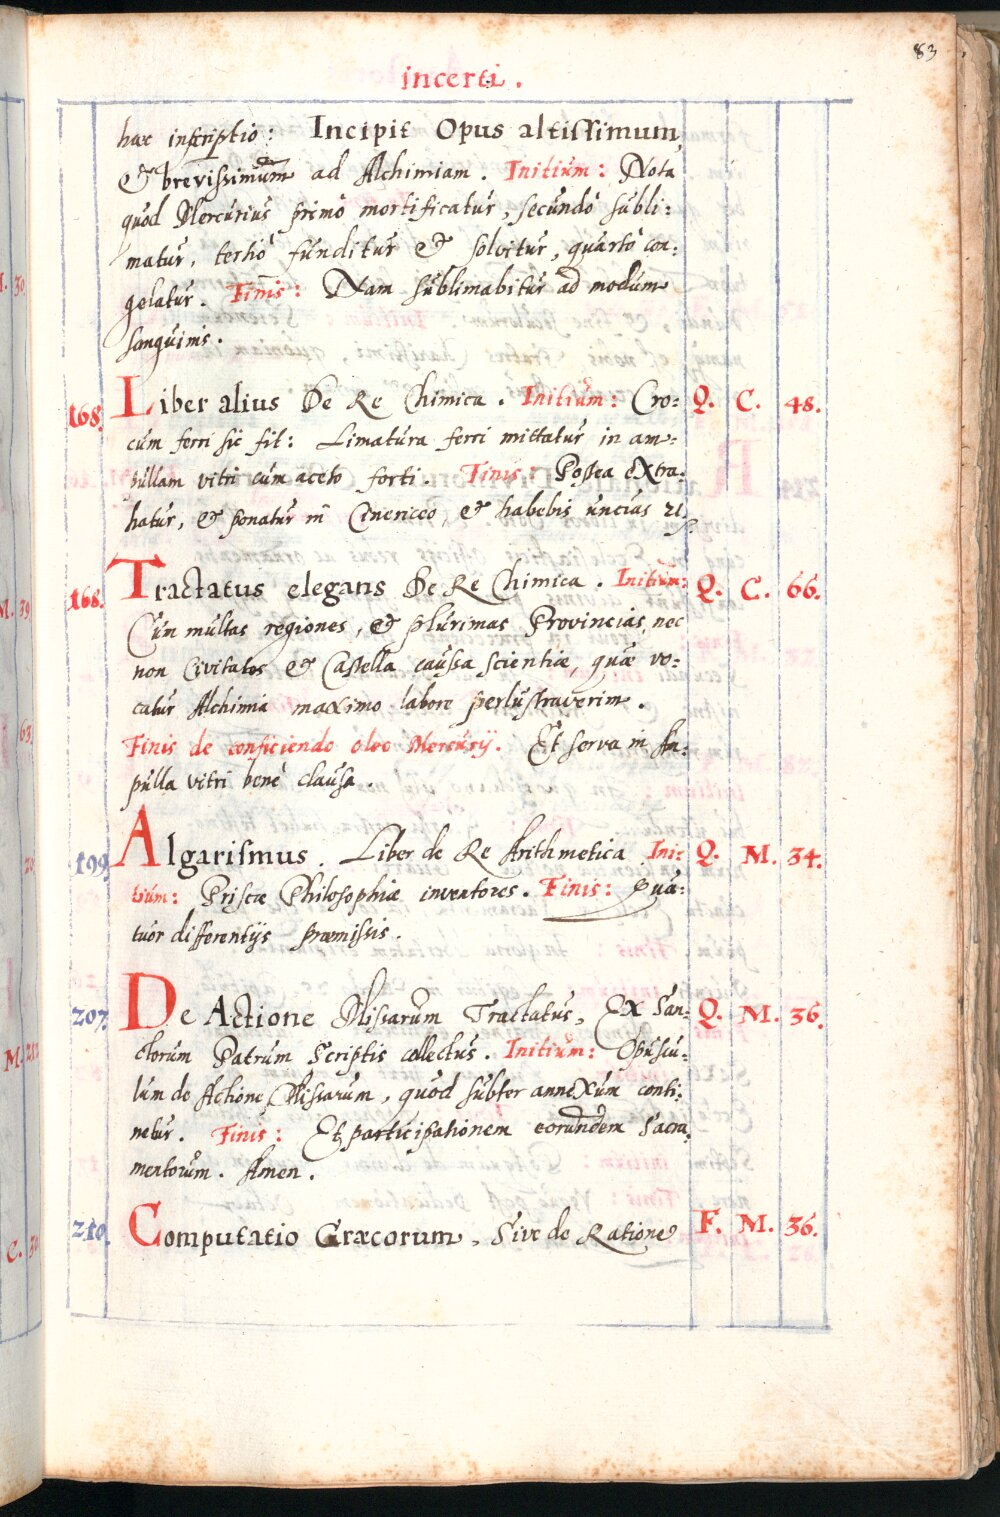 83
incerti.
hæc inscriptio: Incipit Opus altissimum,
& brevissimum ad Alchimiam. Initium: Nota
quod Mercurius primò mortificatur, secundò subli:
matur, tertiò funditur & solvitur, quartò con:
gelatur. Finis: Nam sublimabitur ad modum
sanguinis.
168. Liber alius De Re Chimica. Initium: Cro: Q. C. 48.
cum ferri sic fit: Limatura ferri mittatur in am:
pullam vitri cum aceto forti. Finis: Postea extra:
hatur, & ponatur in Cinericeo, & habebis uncias
168. Tractatus elegans De Re Chimica. Initium: Q. C. 66.
Cùm multas regiones, & plurimas Provincias, nec
non Civitates & Castella caussa scientiæ, quæ vo:
catur Alchimia maximo labore perlustraverim.
Finis de conficiendo oleo Mercurij. Et serva in Am:
pulla vitri benè clausa.
199. Algarismus. Liber de Re Arithmetica. Ini: Q. M. 34.
tium: Priscæ Philosophiæ inventores. Finis: Qua:
tuor differentijs præmissis.
207. De Actione Missarum Tractatus, Ex San: Q. M. 36.
ctorum Patrum Scriptis collectus. Initium: Opuscu:
lum de Actione Missarum, quod subter annexum conti:
netur. Finis: Et participationem eorundem Sacra:
mentorum. Amen.
210. Computatio Græcorum, Sive de Ratione F. M. 36.